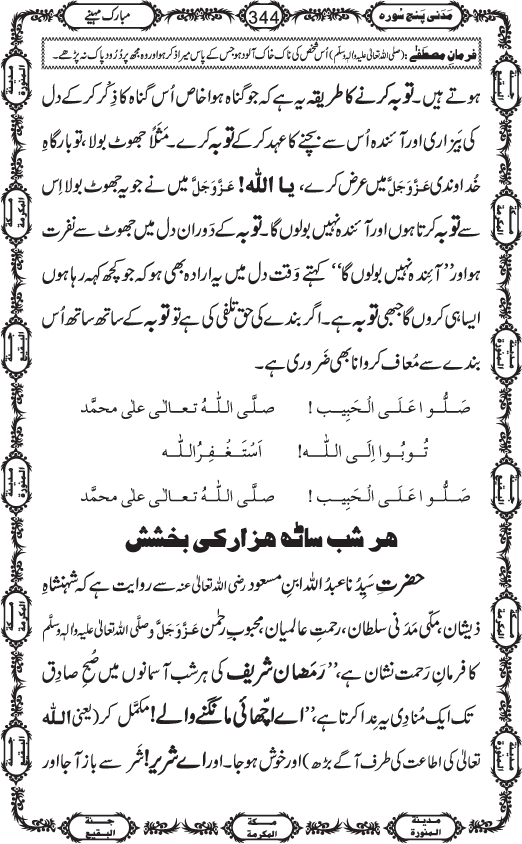 مَدَنی پنج سورہ 344 مبارک مہینے
فرمانِ مصطَفٰے: (صلی اللہ تعالیٰ علیہ والہٖ وسلّم) اُس شخص کی ناک خاک آلود ہو جس کے پاس میرا ذکر ہو اور وہ مجھ پر دُرُود پاک نہ پڑھے۔
ہوتے ہیں۔ توبہ کرنے کا طریقہ یہ ہے کہ جو گناہ ہوا خاص اُس گناہ کا ذِکر کر کے دل
کی بَیزاری اور آئندہ اُس سے بچنے کا عہد کر کے توبہ کرے۔ مَثَلًا جھوٹ بولا، تو بارگاہِ
خُداوندی عَزَّوَجَلَّ میں عرض کرے، یا اللہ! عَزَّوَجَلَّ میں نے جو یہ جھوٹ بولا اِس
سے توبہ کرتا ہوں اور آئندہ نہیں بولوں گا۔ توبہ کے دَوران دل میں جھوٹ سے نفرت
ہو اور ’’آئندہ نہیں بولوں گا‘‘ کہتے وَقت دل میں یہ ارادہ بھی ہو کہ جو کچھ کہہ رہا ہوں
ایسا ہی کروں گا جبھی توبہ ہے۔ اگر بندے کی حق تلفی کی ہے تو توبہ کے ساتھ ساتھ اُس
بندے سے مُعاف کروانا بھی ضَروری ہے۔
صَلُّوا عَلَى الْحَبِيب! صلَّى اللّٰہُ تعالٰى علٰى محمَّد
تُوبُوا اِلَى اللّٰه! اَسْتَغْفِرُاللّٰه
صَلُّوا عَلَى الْحَبِيب! صلَّى اللّٰہُ تعالٰى علٰى محمَّد
ہر شب ساٹھ ہزار کی بخشش
حضرتِ سَیِّدُنا عبدُ اللہ ابنِ مسعود رضی اللہ تعالیٰ عنہ سے روایت ہے کہ شہنشاہِ
ذیشان، مکّی مَدَنی سلطان، رحمتِ عالمیان، محبوبِ رحمٰن عَزَّوَجَلَّ وصلَّی اللہ تعالیٰ علیہ والہٖ وسلَّم
کا فرمانِ رَحمت نشان ہے، ’’رَمَضان شریف کی ہر شب آسمانوں میں صُبحِ صادِق
تک ایک مُنادِی یہ ندا کرتا ہے، ’’اے اچّھائی مانگنے والے! مکمَّل کر (یعنی اللہ
تعالیٰ کی اطاعت کی طرف آگے بڑھ) اور خوش ہو جا۔ اور اے شَرِیر! شَر سے باز آ جا اور
مدینۃ المنورۃ
مکۃ المکرمۃ
جنۃ البقیع
مدینۃ المنورۃ
مکۃ المکرمۃ
جنۃ البقیع
جنۃ البقیع
مکۃ المکرمۃ
مدینۃ المنورۃ
جنۃ البقیع
مکۃ المکرمۃ
مدینۃ المنورۃ
مدینۃ المنورۃ مکۃ المکرمۃ جنۃ البقیع